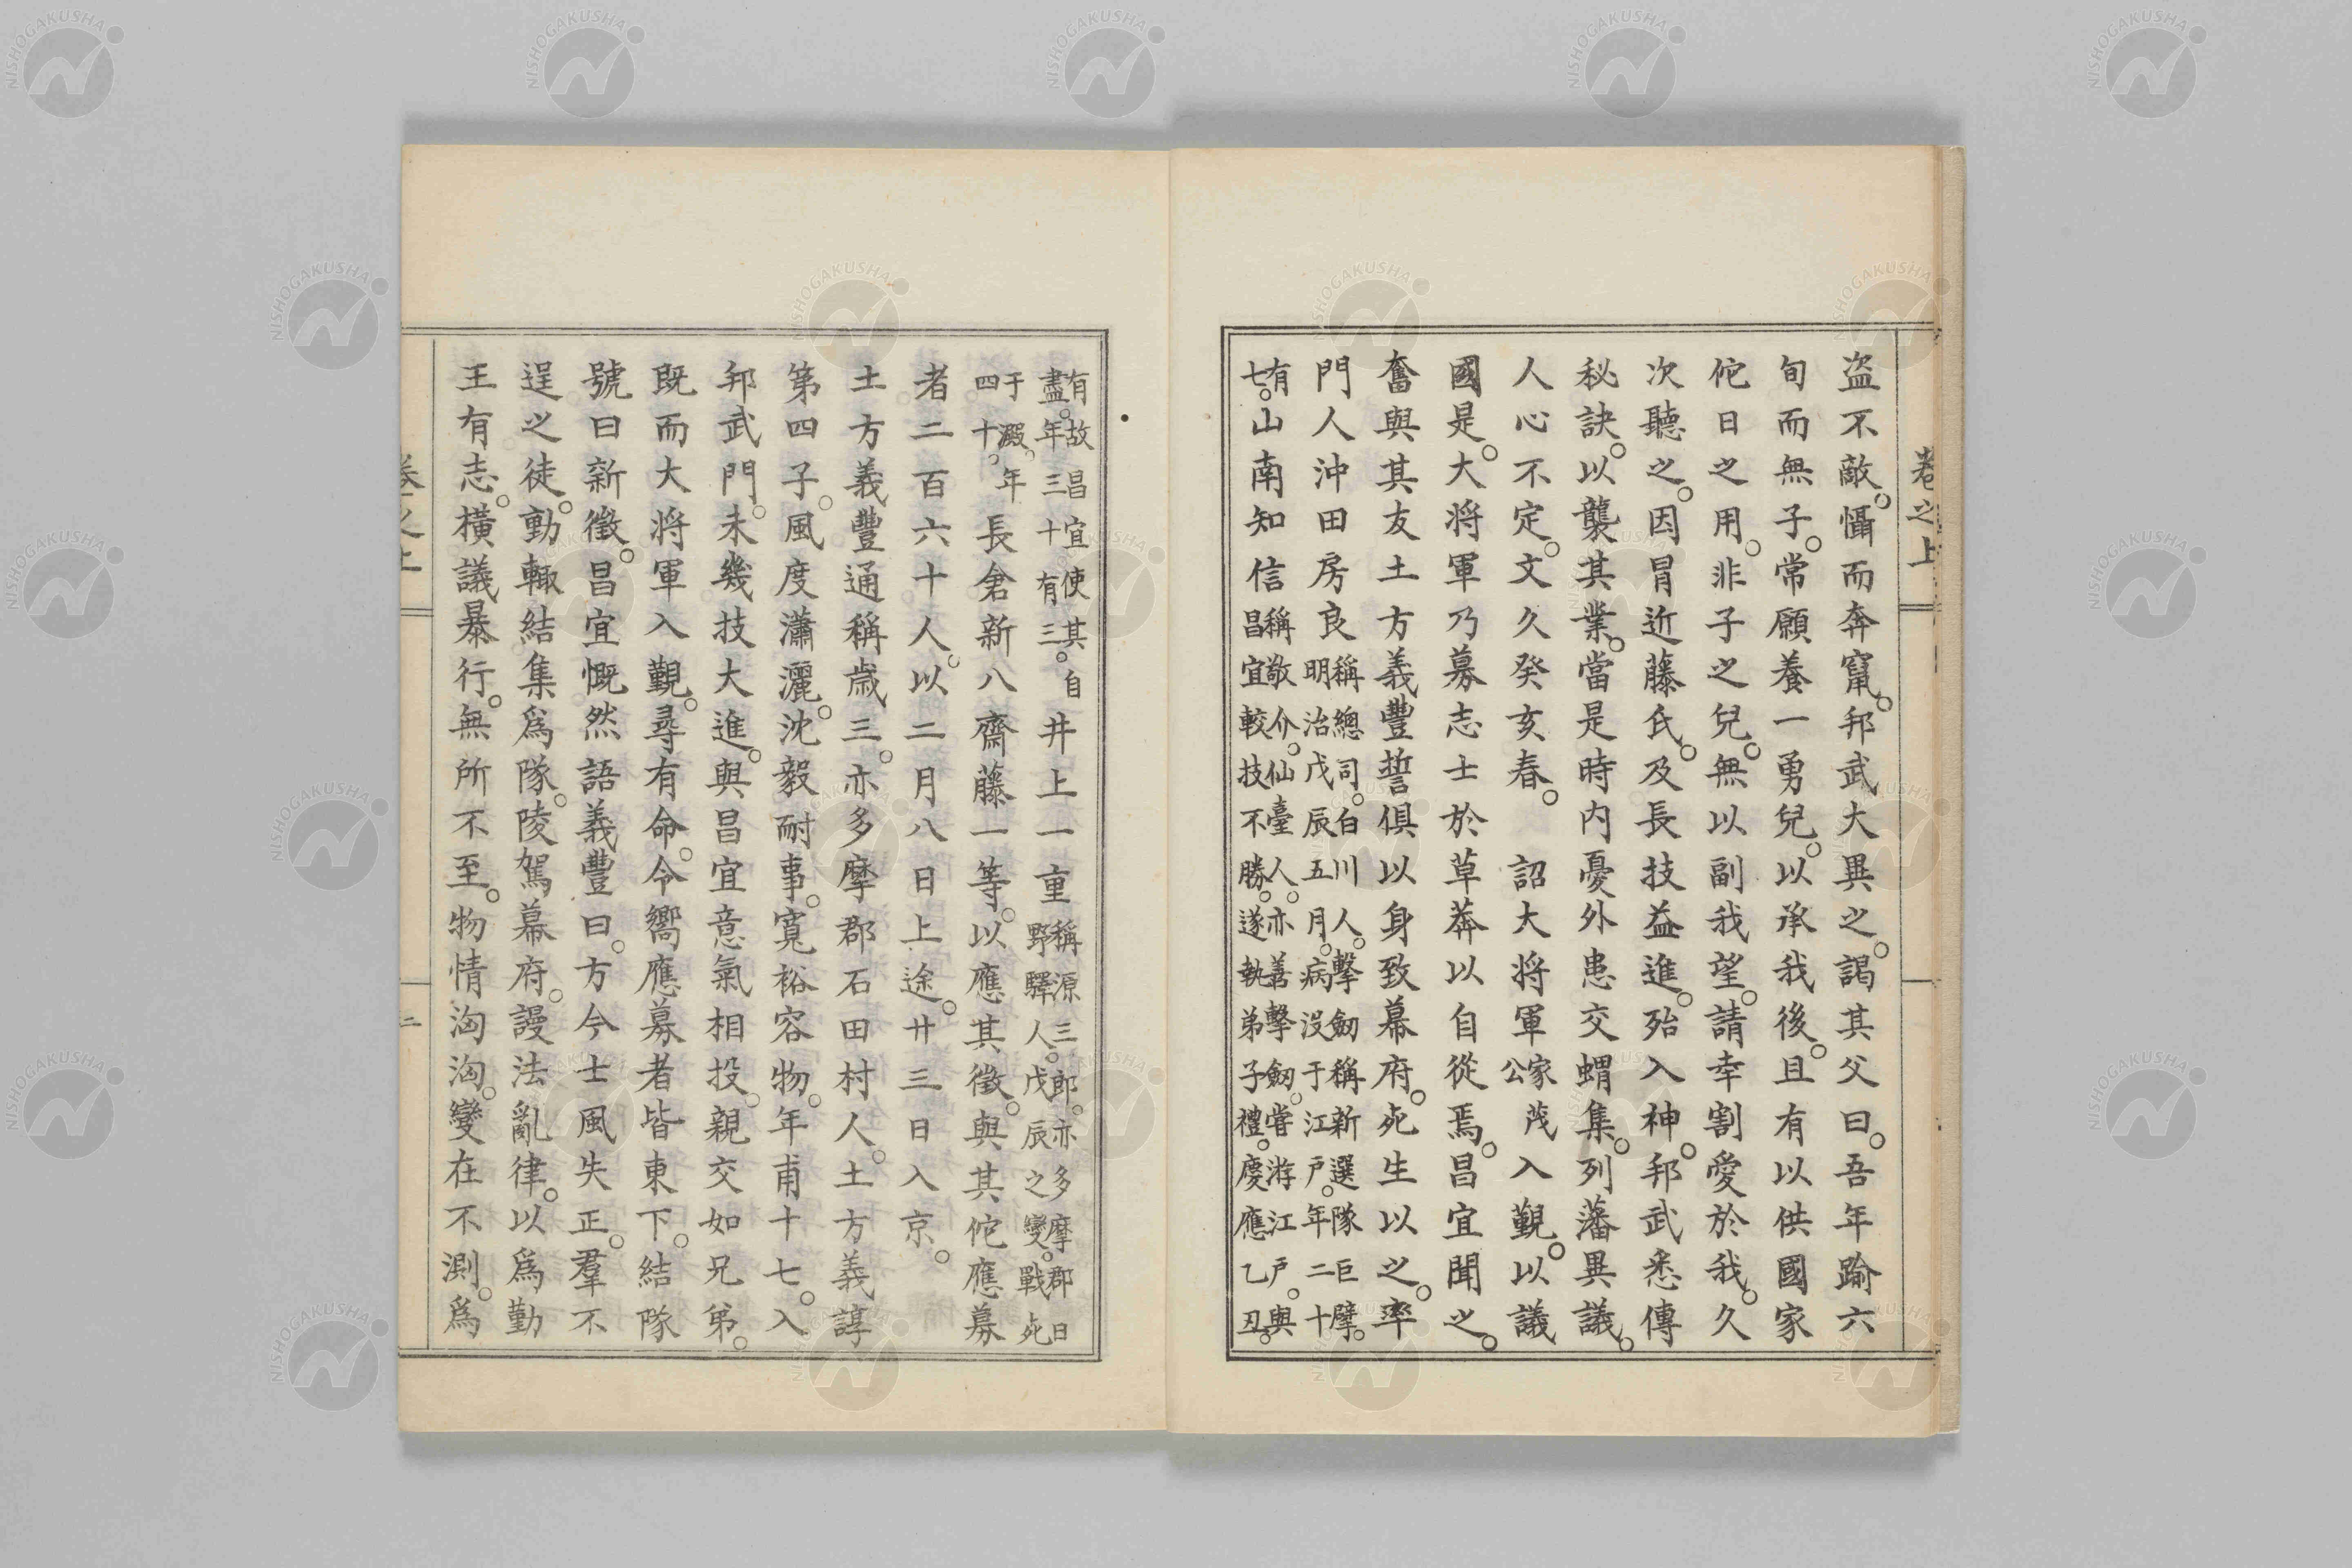 卷之上
盗不敵。懾而奔竄。邦武大異之。謁其父曰。吾年踰六
旬而無子。常願養一勇兒。以承我後。且有以供國家
佗日之用。非子之兒。無以副我望。請幸割愛於我。久
次聽之。因冒近藤氏。及長技益進。殆入神。邦武悉傳
秘訣。以襲其業。當是時内憂外患交蝟集。列藩異議。
人心不定。文久癸亥春。 詔大将軍家茂公入覲。以議
國是。大将軍乃募志士於草莽以自從焉。昌宜聞之。
奮與其友土方義豐誓倶以身致幕府。死生以之。率
門人沖田房良稱總司。白川人。擊劒稱新選隊巨擘。明治戊辰五月。病没于江戸。年二十
有七。山南知信稱敬介。仙臺人。亦善擊劒。嘗游江戸。與昌宜較技不勝。遂執弟子禮。慶應乙丑。
有故昌宜使其自盡。年三十有三。井上一重稱源三郎。亦多摩郡日野驛人。戊辰之變。戰死
于澱。年四十。長倉新八齋藤一等。以應其徵。與其佗應募
者二百六十人。以二月八日上途。廿三日入京。
土方義豐通稱歳三。亦多摩郡石田村人。土方義諄
第四子。風度瀟灑。沈毅耐事。寬裕容物。年甫十七。入
邦武門。未幾技大進。與昌宜意氣相投。親交如兄弟。
既而大将軍入覲。尋有命。令嚮應募者皆東下。結隊
號曰新徵。昌宜慨然語義豐曰。方今士風失正。羣不
逞之徒。動輙結集爲隊。陵駕幕府。謾法亂律。以爲勤
王有志。橫議暴行。無所不至。物情洶洶。變在不測。爲
二
NISHOGAKUSHA